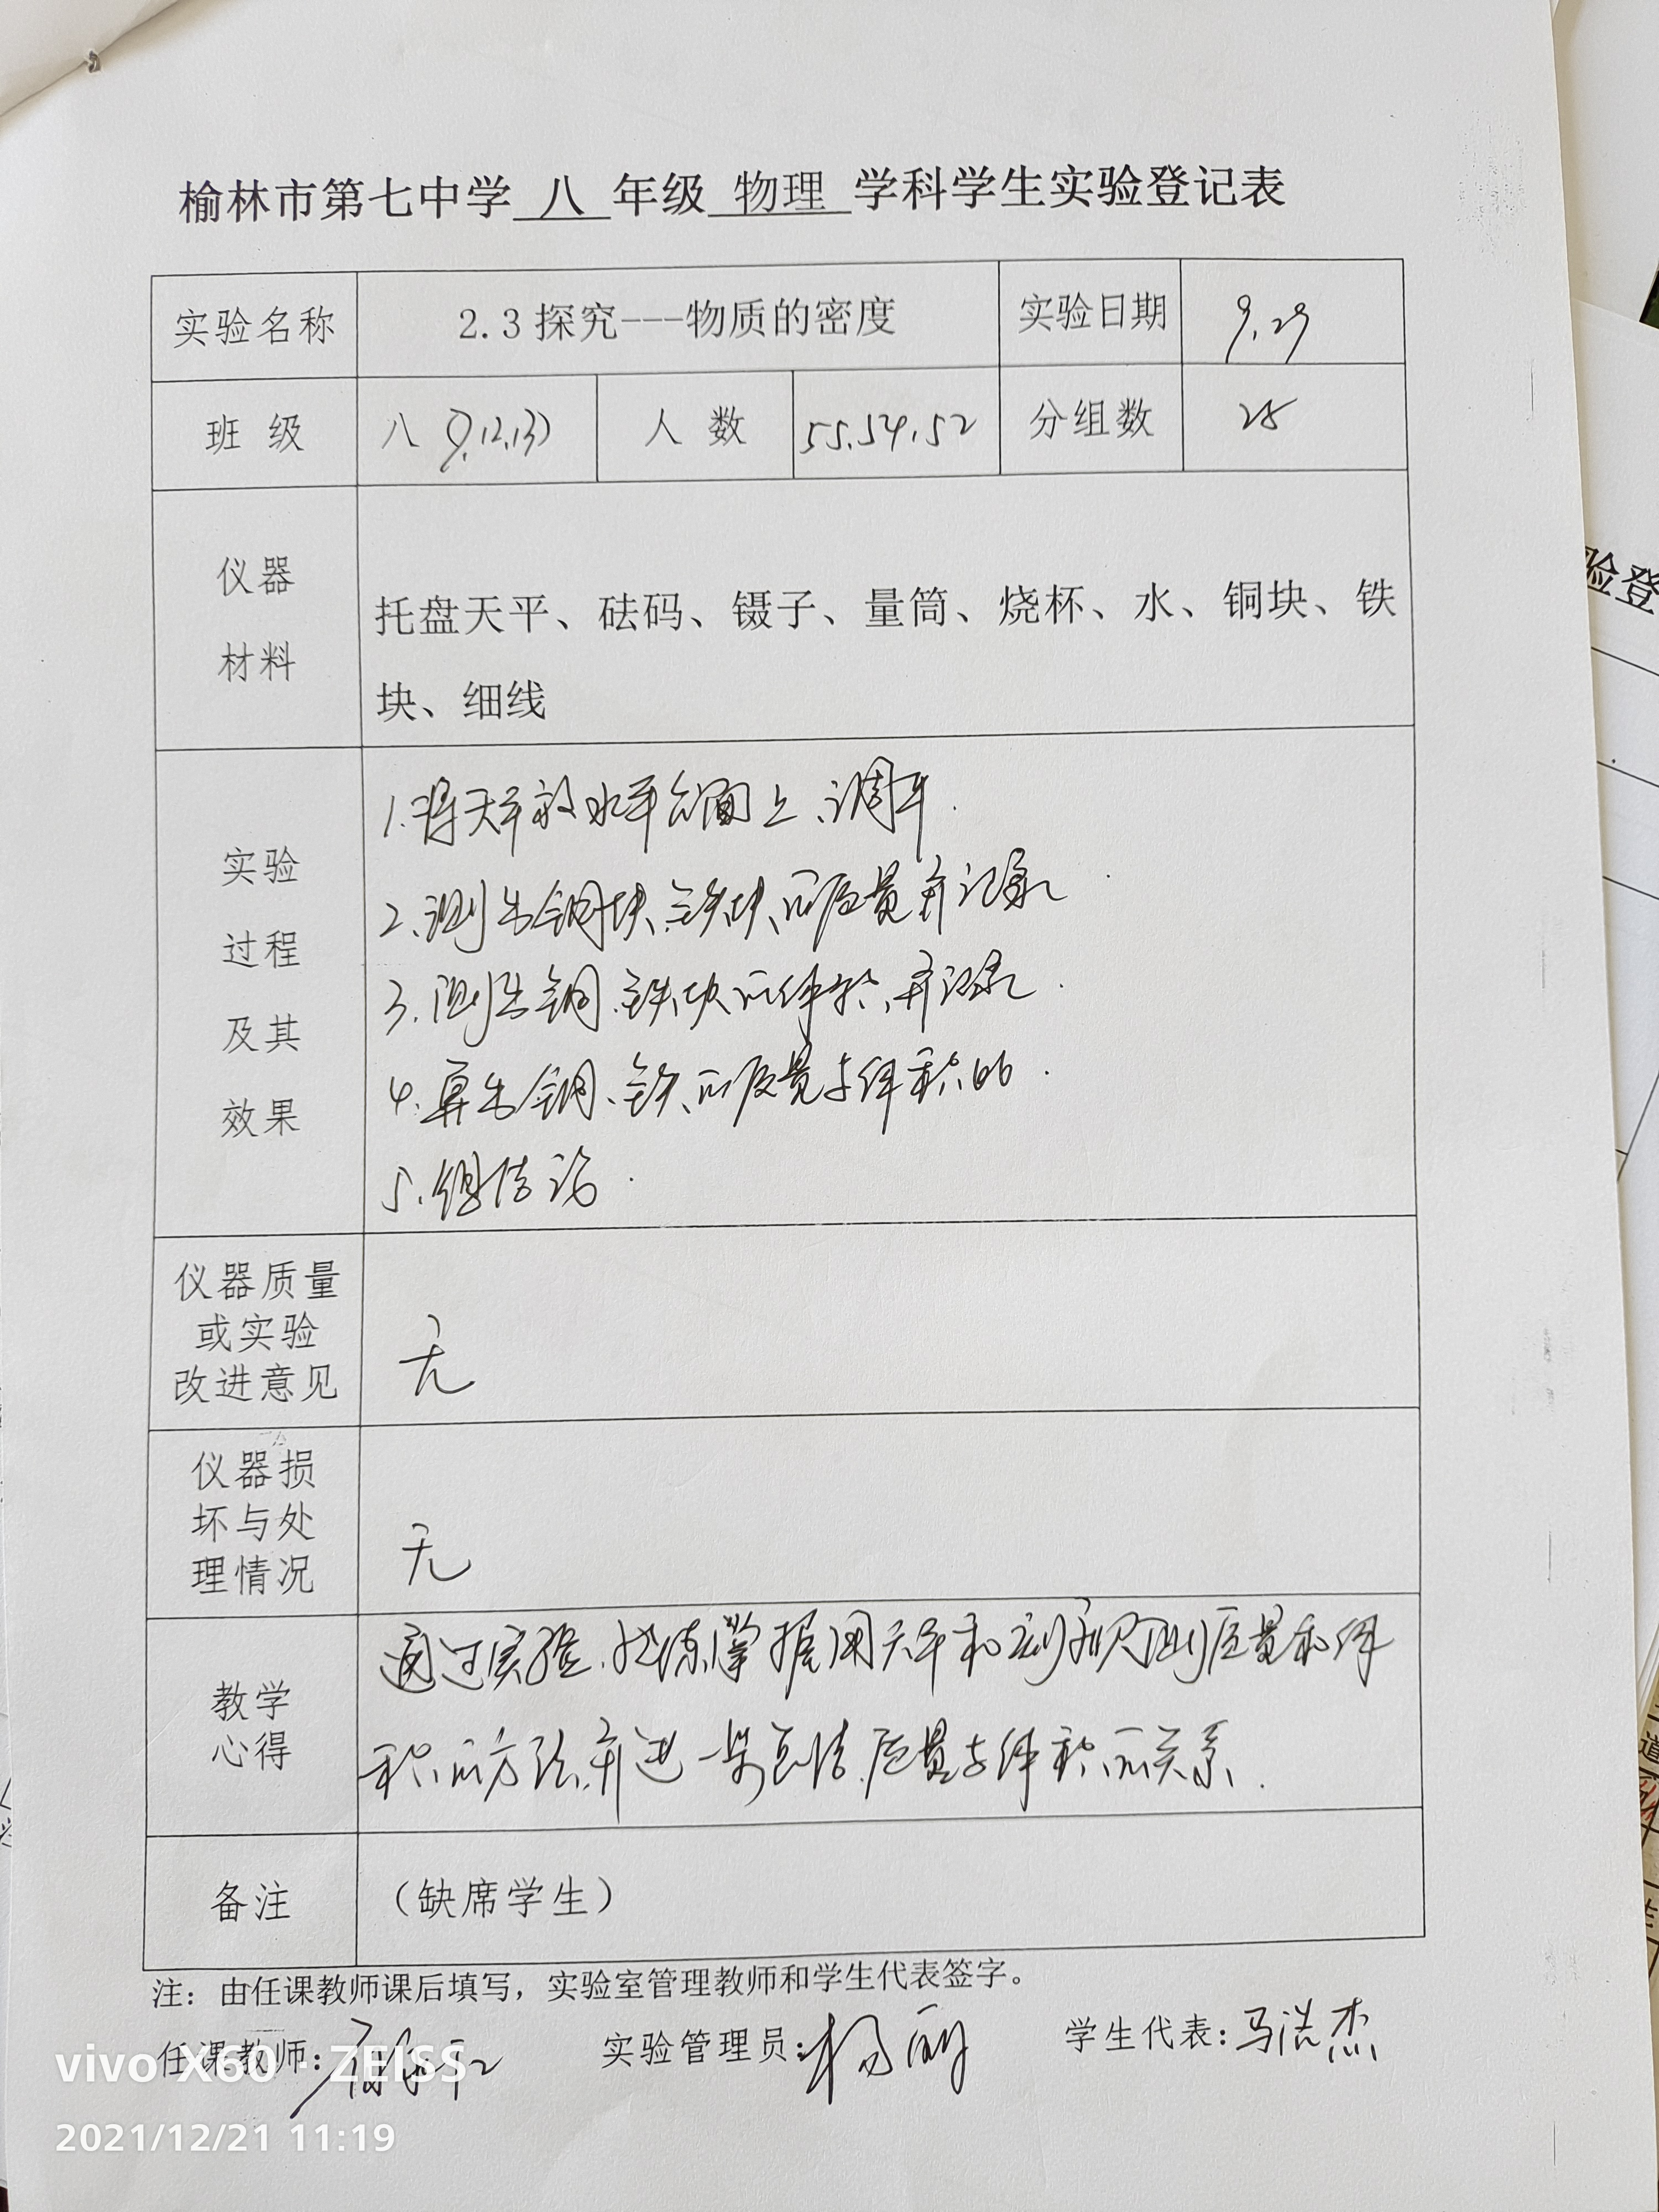 榆林市第七中学 八 年级 物理 学科学生实验登记表
实验名称 2.3 探究---物质的密度 实验日期 9.29
班 级 八(9.12.13) 人 数 55.54.52 分组数 28
仪器
材料
托盘天平、砝码、镊子、量筒、烧杯、水、铜块、铁
块、细线
实验
过程
及其
效果
1.将天平放水平台面上、调平.
2.测出铜块、铁块、的质量并记录
3.测出铜、铁块的体积、并记录.
4.算出铜、铁、的质量与体积的.
5.得结论.
仪器质量
或实验
改进意见
无
仪器损
坏与处
理情况
无
教学
心得
通过实验.熟练掌握用天平和刻度尺测质量和体
积的方法.并进一步总结.质量与体积的关系.
备注 (缺席学生)
注：由任课教师课后填写，实验室管理教师和学生代表签字。
任课教师: 实验管理员:杨丽 学生代表:马浩杰
vivo X60 · ZEISS
2021/12/21 11:19
验登
道